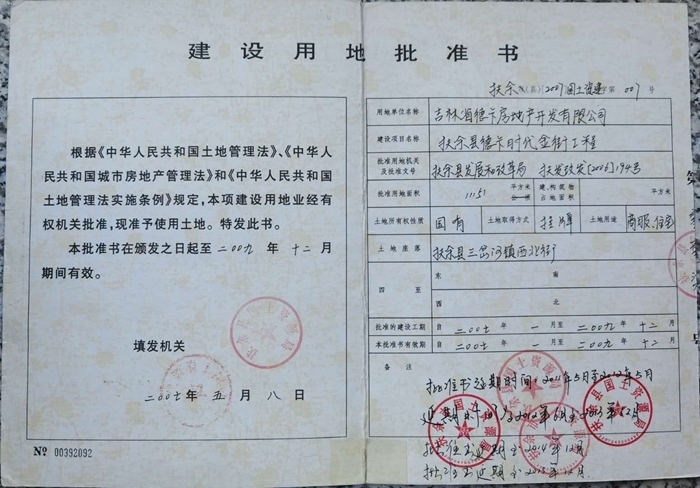 建设用地批准书
根据《中华人民共和国土地管理法》、《中华人民
共和国城市房地产管理法》和《中华人民共和国
土地管理法实施条例》规定，本项建设用地业经有
权机关批准，现准予使用土地。特发此书。
本批准书在颁发之日起至二00九年十二月
期间有效。
填发机关
二00七年五月八日
Nº 00392092
扶余县(2007)国土资建字第007号
用地单位名称 吉林省德卡房地产开发有限公司
建设项目名称 扶余县德卡时代金街工程
批准用地机关及批准文号 扶余县发展和改革局 扶发改发[2006]194号
批准用地面积 11151 平方米 建、构筑物占地面积 平方米
土地所有权性质 国有 土地取得方式 挂牌 土地用途 商服、住宅
土地座落 扶余县三岔河镇西北街
四至 东 南
西 北
批准的建设工期 自二00七年一月至二00九年十二月
本批准书有效期 自二00七年一月至二00九年十二月
备注
批准书延期时间：2011年5月至2012年5月
延期时间为2012年6月至2013年12月
批准书延期至2014年12月
批准书延期至2015年12月.
扶余县国土资源局